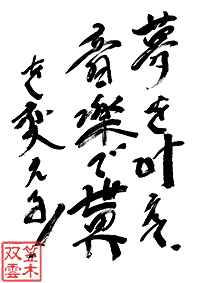 夢を叶え、
音楽で世界
を変える!
笠木
双雲